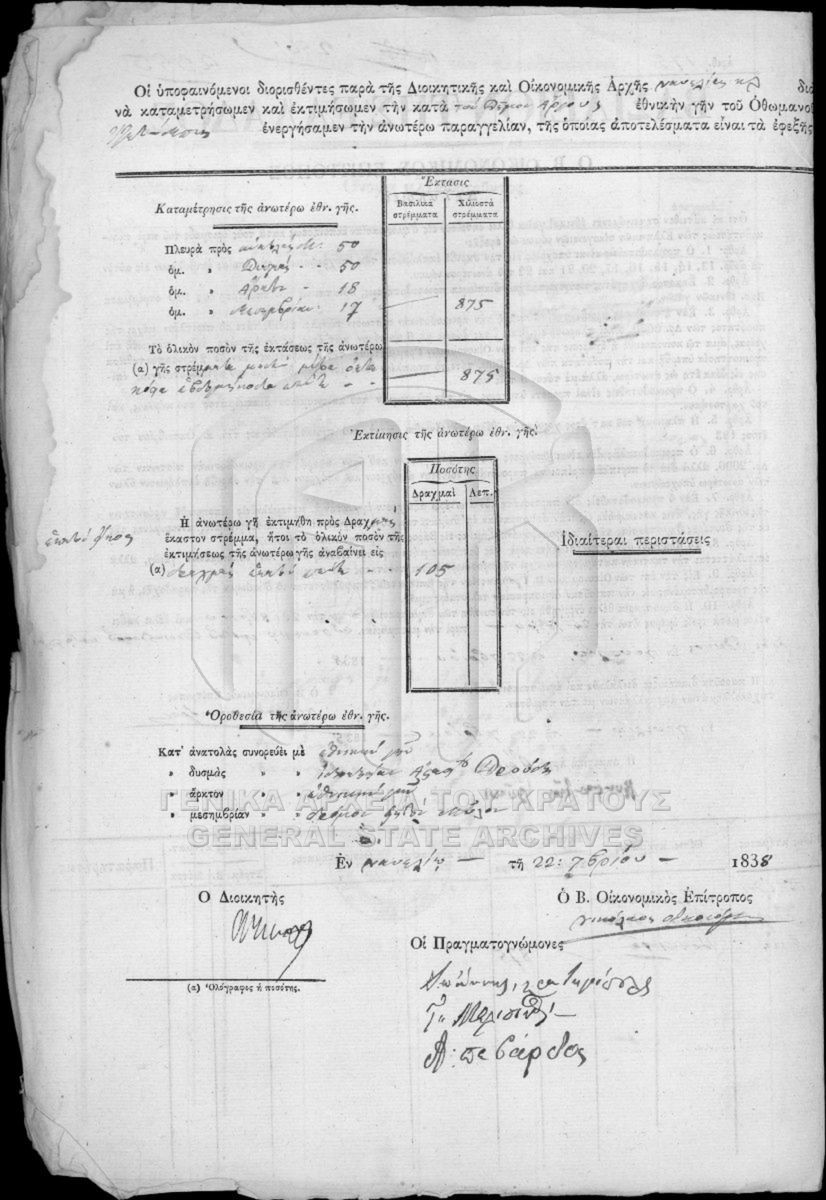 Οἱ ὑποφαινόμενοι διορισθέντες παρὰ τῆς Διοικητικῆς καὶ Οἰκονομικῆς Ἀρχῆς Ναυπλίας κλ διὰ
νὰ καταμετρήσωμεν καὶ ἐκτιμήσωμεν τὴν κατὰ τοῦ Δήμου Ἄργους ἐθνικὴν γῆν τοῦ Ὀθωμανοῦ
ἐνεργήσαμεν τὴν ἀνωτέρω παραγγελίαν, τῆς ὁποίας ἀποτελέσματα εἶναι τὰ ἐφεξῆς
Ἔκτασις
Καταμέτρησις τῆς ἀνωτέρω ἐθν. γῆς.
Βασιλικὰ στρέμματα
Χιλιοστὰ στρέμματα
Πλευρὰ πρὸς ἀνατολὰς Μ: 50
ὁμ. » Δυσμάς - - 50
ὁμ. » Ἄρκτον - 18
ὁμ. » Μεσημβρίαν: 17 875
Τὸ ὁλικὸν ποσὸν τῆς ἐκτάσεως τῆς ἀνωτέρω
(α) γῆς στρέμματα 875
ἑβδομήκοντα πέντε - -
Ἐκτίμησις τῆς ἀνωτέρω ἐθν. γῆς.
Ποσότης
Δραχμαὶ Λεπ.
Ἡ ἀνωτέρω γῆ ἐκτιμήθη πρὸς Δραχμὰς
ἑκατὸν εἴκοσι
ἕκαστον στρέμμα, ἤτοι τὸ ὁλικὸν ποσὸν τῆς
ἐκτιμήσεως τῆς ἀνωτέρω γῆς ἀναβαίνει εἰς
(α) δραχμὰς ἑκατὸν πέντε - - 105
Ἰδιαίτεραι περιστάσεις
Ὁροθεσία τῆς ἀνωτέρω ἐθν. γῆς.
Κατ' ἀνατολὰς συνορεύει μὲ ἐθνικὴν γῆν
» δυσμὰς » »
» ἄρκτον » » ἐθνικὴν γῆν
» μεσημβρίαν » » δρόμον
ΓΕΝΙΚΑ ΑΡΧΕΙΑ ΤΟΥ ΚΡΑΤΟΥΣ
GENERAL STATE ARCHIVES
Ἐν Ναυπλίῳ - τῇ 22: 7βρίου - 1838
Ὁ Διοικητὴς
Ὁ Β. Οἰκονομικὸς Ἐπίτροπος
Νικόλαος
Οἱ Πραγματογνώμονες
Ἰωάννης
(α) Ὁλόγραφος ἡ ποσότης.